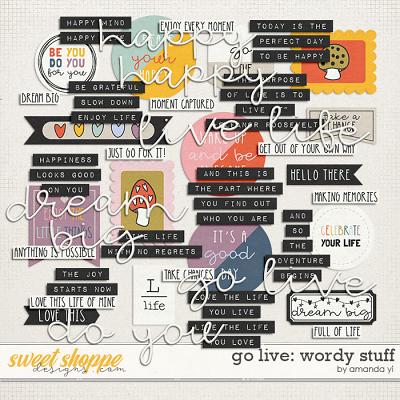 HAPPY MIND
HAPPY LIFE
ENJOY EVERY MOMENT
TODAY IS THE
PERFECT DAY
TO BE HAPPY
BE YOU
DO YOU
for you
happy
happy
go
THE PURPOSE
OF LIFE IS TO
LIVE IT
DREAM BIG
BE GRATEFUL
SLOW DOWN
ENJOY LIFE
MOMENT CAPTURED
ELEANOR ROOSEVELT
take a
CHANCE
live life
JUST GO FOR IT!
GET OUT OF YOUR OWN WAY
HAPPINESS
LOOKS GOOD
ON YOU
WAKE UP
and be
AND THIS IS
THE PART WHERE
YOU FIND OUT
WHO YOU ARE
HELLO THERE
MAKING MEMORIES
dream
big
LIVE LIFE
WITH NO REGRETS
IT'S A
good
DAY
AND
SO
THE
ADVENTURE
BEGINS
CELEBRATE
YOUR LIFE
ANYTHING IS POSSIBLE
THE JOY
STARTS NOW
TAKE CHANCES
go live
LOVE THIS LIFE OF MINE
LOVE THIS
L
life
LOVE THE LIFE
YOU LIVE
LIVE THE LIFE
YOU LOVE
dream big
FULL OF LIFE
do you
sweet shoppe
designs.com
go live: wordy stuff
by amanda yi